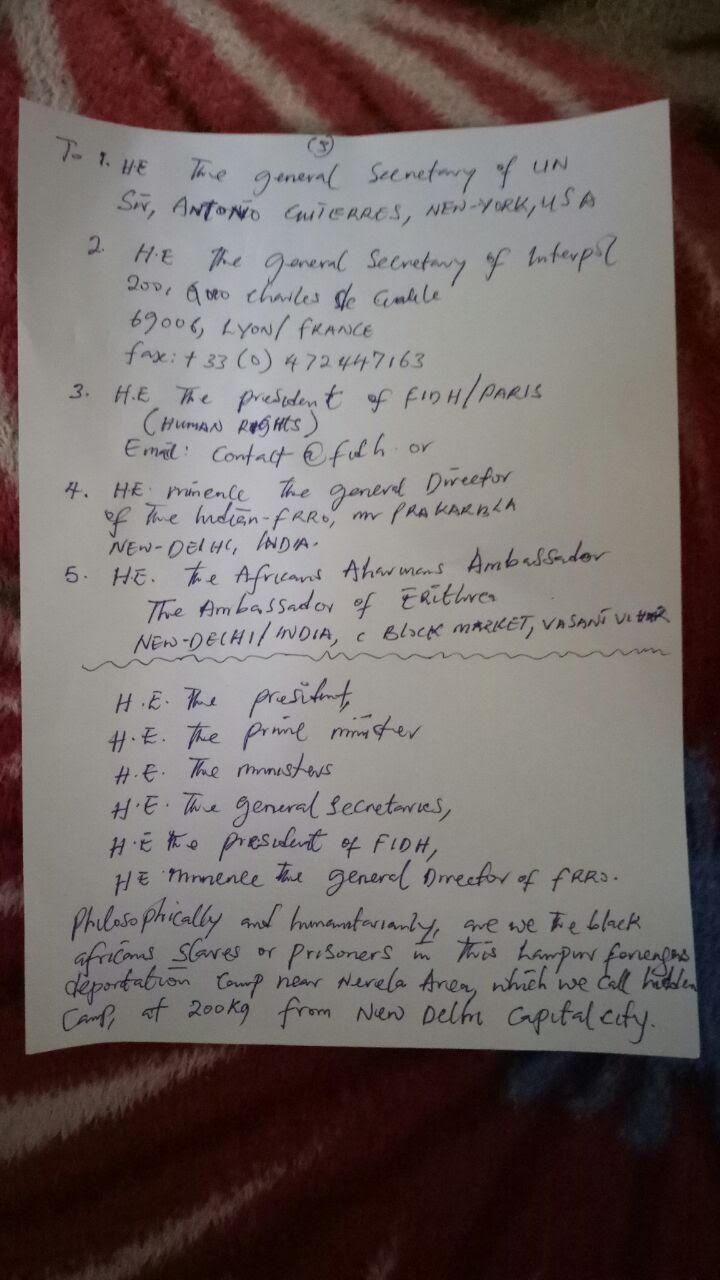 (5)
To 1. H.E The general Secretary of UN
Sir, ANTONIO GUTERRES, NEW-YORK, USA
2. H.E The general Secretary of Interpol
200, Charles de
69006, LYON/ FRANCE
fax: + 33 (0) 472447163
3. H.E The president of FIDH/PARIS
(HUMAN RIGHTS)
Email: Contact @ fidh. or
4. HE. minence The general Director
of The Indian-FRRO, mr PRAKARBLA
NEW-DELHI, INDIA.
5. HE. The Africans Ambassador
The Ambassador of Erithrea
NEW-DELHI/ INDIA, C BLOCK MARKET, VASANT VIHAR
H.E. The president,
H.E. The prime minister
H.E. The ministers
H.E. The general Secretaries,
H.E The president of FIDH,
HE minence The general Director of FRRO.
Philosophically and humanitarianly, are we The black
africans Slaves or Prisoners in This Lampur foriengers
deportation Camp near Nerela Area, which we Call hidden
Camp, at 200Kg from New Delhi Capital city.